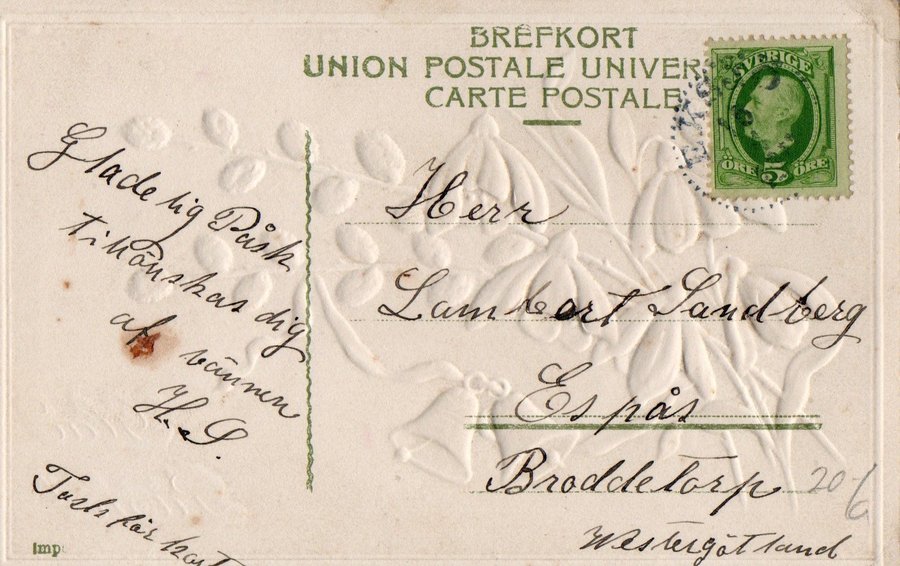 BREFKORT
UNION POSTALE UNIVER
CARTE POSTALE
SVERIGE
ÖRE 5 ÖRE
Gladelig Påsk
tillönskas dig
af vännen
H. S.
Herr
Lambert Sandberg
Espås
Broddetorp
Westergötland
20
Imp